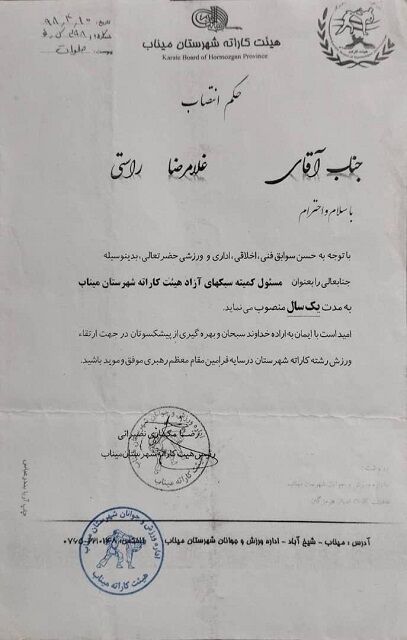 هیئت کاراته شهرستان میناب
Karate Board of Hormozgan Province
حکم انتصاب
جناب آقای غلامرضا راستی
با سلام و احترام
با توجه به حسن سوابق فنی، اخلاقی، اداری و ورزشی حضرتعالی، بدینوسیله
جنابعالی را بعنوان مسئول کمیته سبکهای آزاد هیئت کاراته شهرستان میناب
به مدت یک سال منصوب می نماید.
امید است با ایمان به اراده خداوند سبحان و بهره گیری از پیشکسوتان در جهت ارتقاء
ورزش رشته کاراته شهرستان در سایه فرامین مقام معظم رهبری موفق و موید باشید.
رئیس هیئت کاراته شهرستان میناب
اداره ورزش و جوانان شهرستان میناب
هیئت کاراته میناب
آدرس : میناب - شیخ آباد - اداره ورزش و جوانان شهرستان میناب
اداره ورزش و جوانان شهرستان میناب
هیئت کاراته میناب